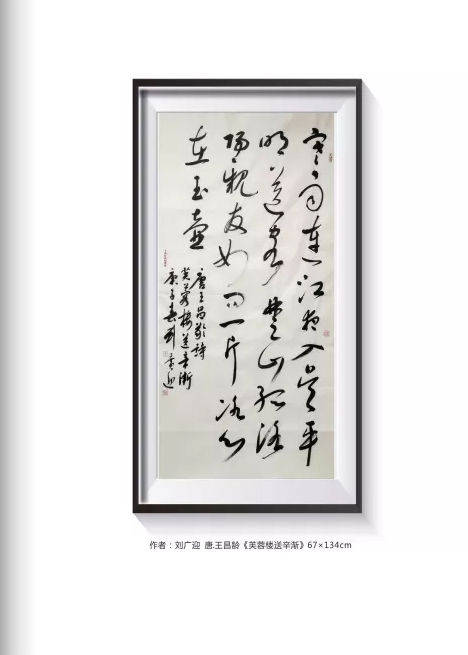 寒雨连江夜入吴平
明送客楚山孤洛
阳親友如问一片冰心
在玉壶
唐王昌龄诗
芙蓉楼送辛渐
庚子春刘广迎
作者：刘广迎 唐.王昌龄《芙蓉楼送辛渐》67×134cm